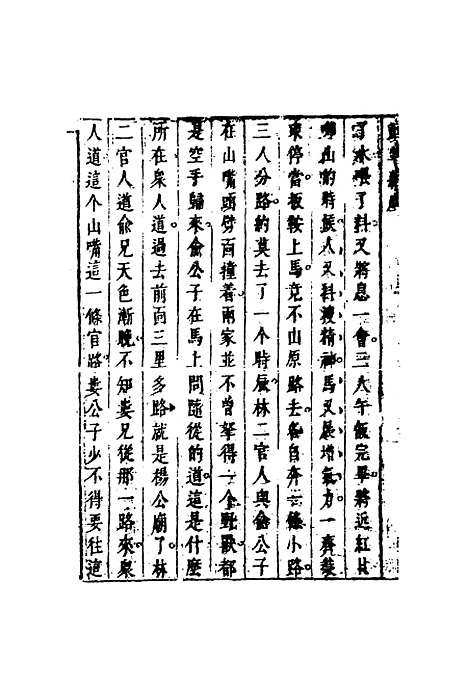 了水喂了料又將息一會三人午飯完畢將近紅日
啣山的時候人又料搜精神馬又展增氣力一齊裝
束停當板鞍上馬竟不山原路去各自奔一條小路
三人分路約莫去了一个時辰林二官人與俞公子
在山嘴頭劈面撞着兩家並不曾拏得一个野獸都
是空手歸來俞公子在馬上問隨從的道這是什麼
所在衆人道過去前面三里多路就是楊公廟了林
二官人道俞兄天色漸晚不知婁兄從那一路來衆
人道這个山嘴這一條官路婁公子少不得要往這